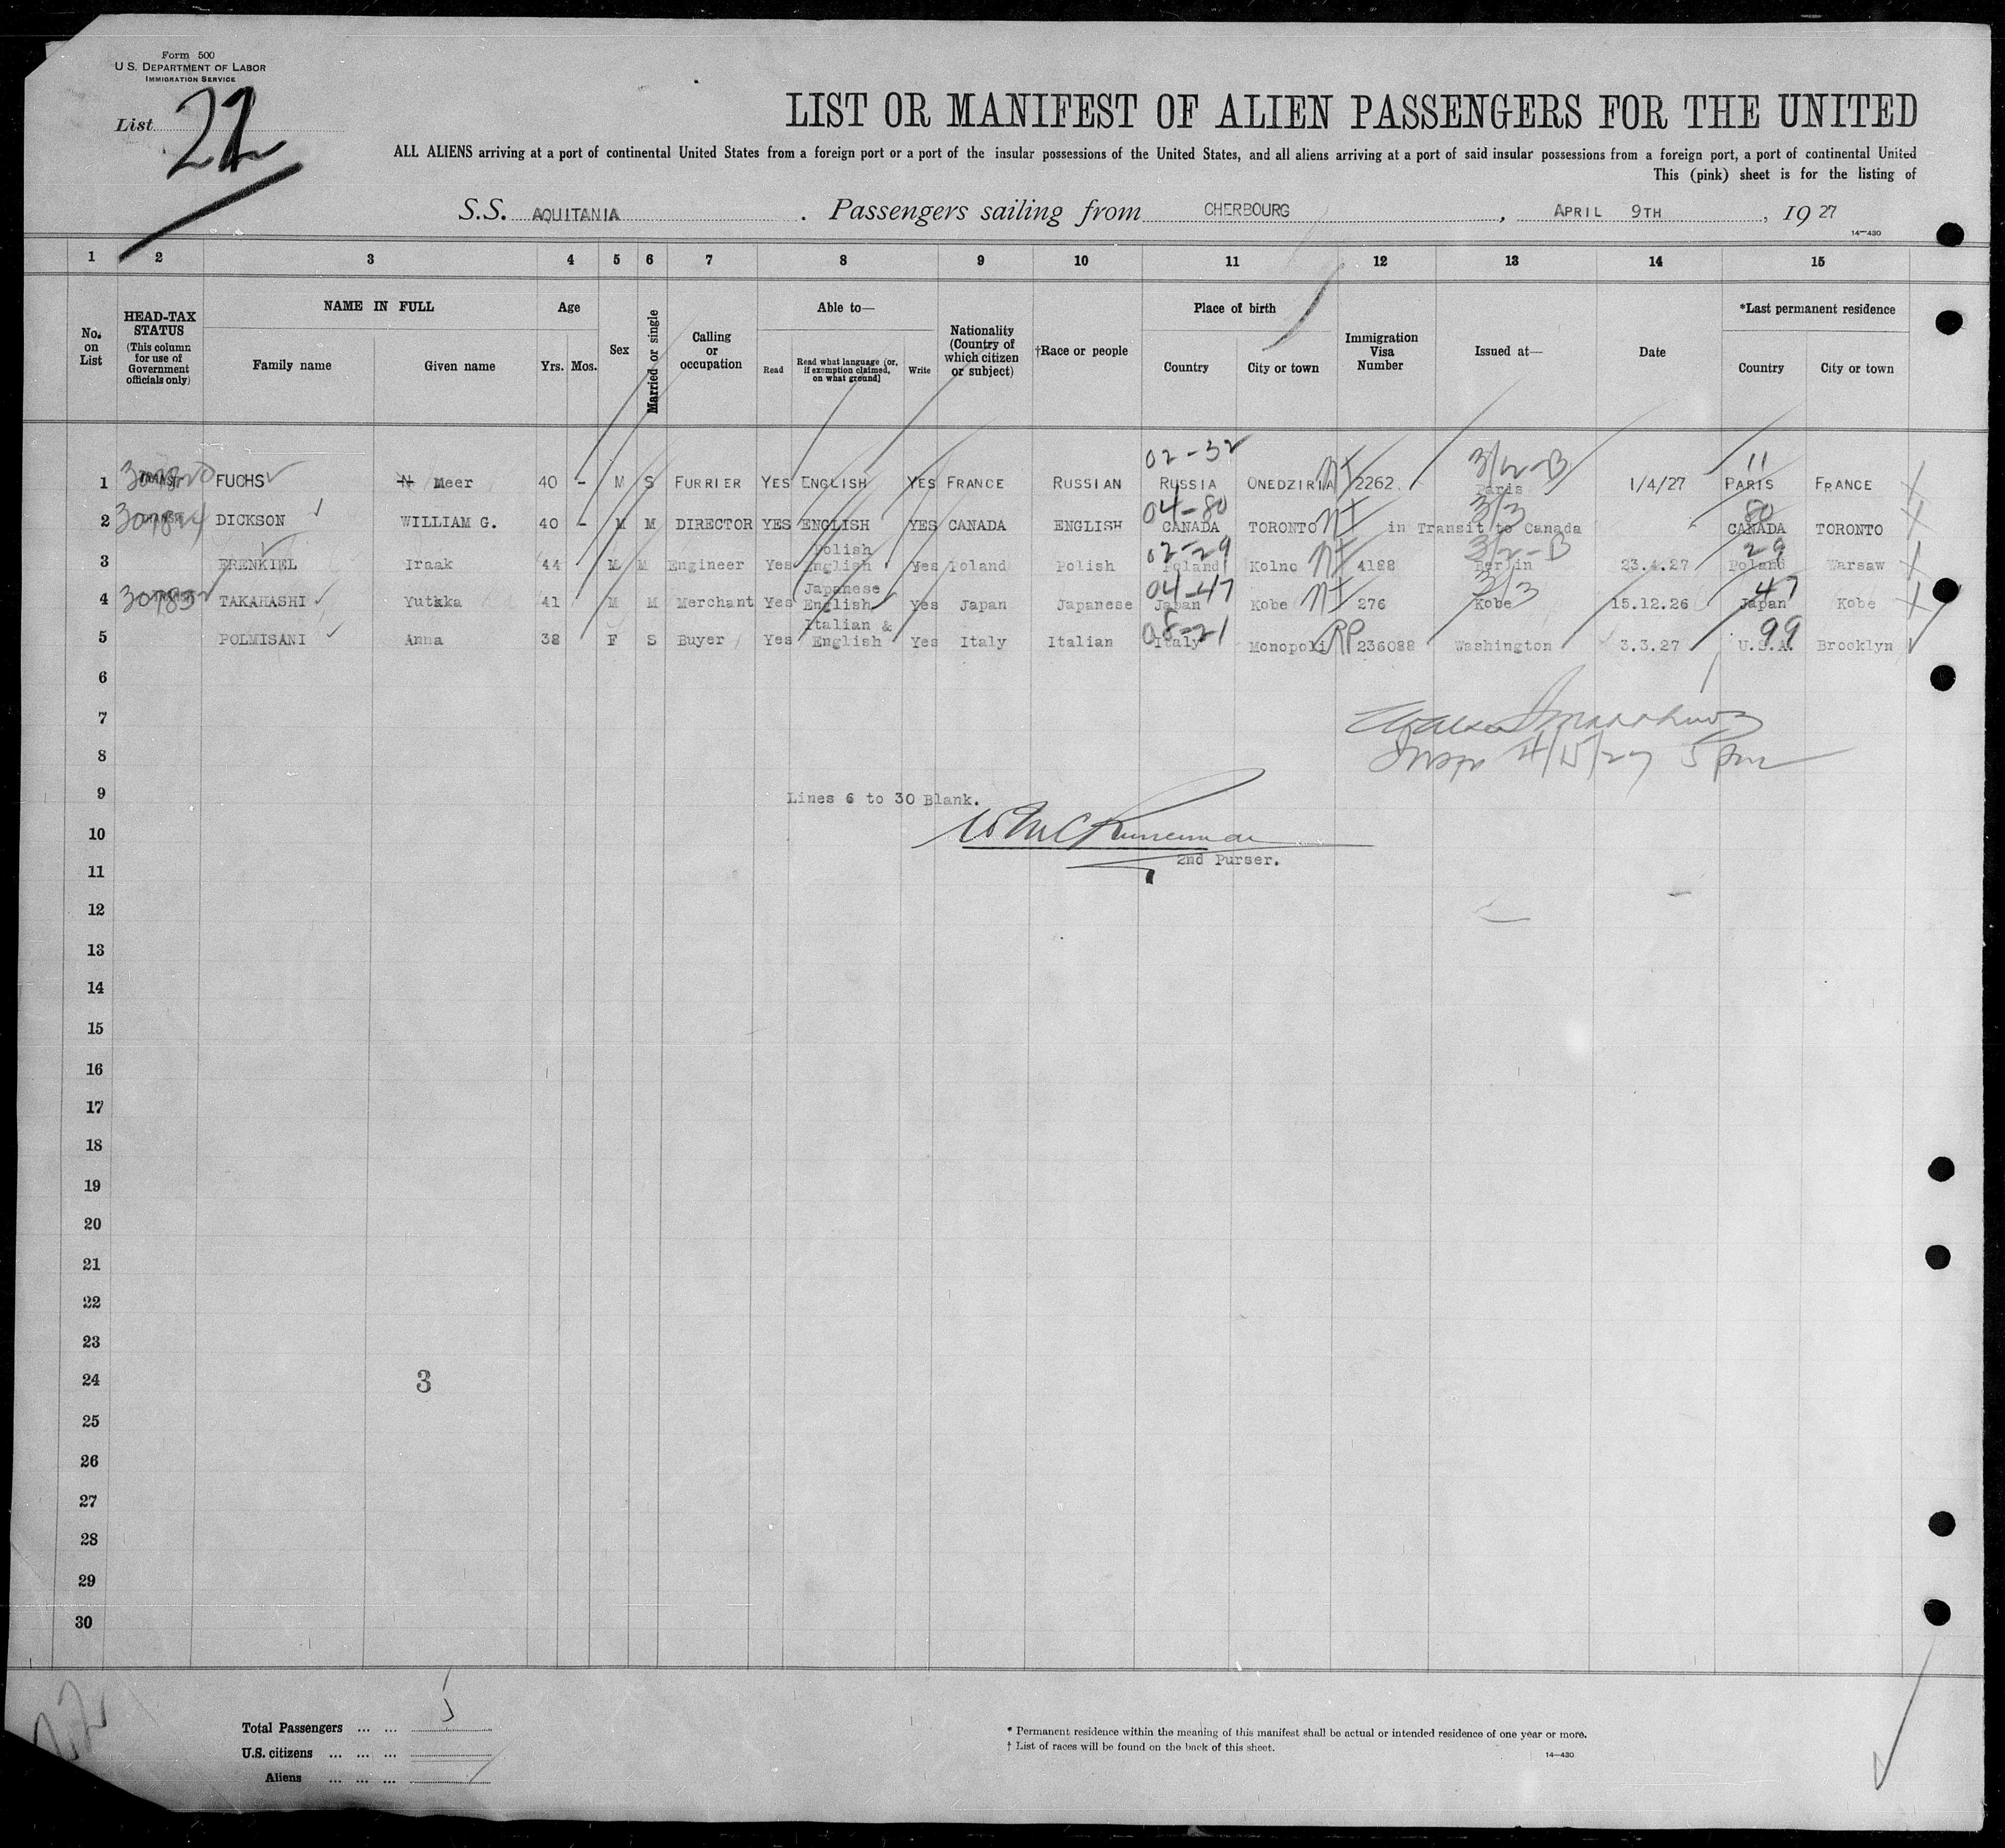 Form 500
U.S. DEPARTMENT OF LABOR
IMMIGRATION SERVICE
List 22
LIST OR MANIFEST OF ALIEN PASSENGERS FOR THE UNITED
ALL ALIENS arriving at a port of continental United States from a foreign port or a port of the insular possessions of the United States, and all aliens arriving at a port of said insular possessions from a foreign port, a port of continental United
This (pink) sheet is for the listing of
S.S. AQUITANIA . Passengers sailing from CHERBOURG , APRIL 9TH , 19 27
14-430
1 2 3 4 5 6 7 8 9 10 11 12 13 14 15
No. on List
HEAD-TAX STATUS (This column for use of Government officials only)
NAME IN FULL
Family name Given name
Age
Yrs. Mos.
Sex
Married or single
Calling or occupation
Able to—
Read Read what language (or, if exemption claimed, on what ground) Write
Nationality (Country of which citizen or subject)
†Race or people
Place of birth
Country City or town
Immigration Visa Number
Issued at—
Date
*Last permanent residence
Country City or town
02-32 3/2-B 11
1 FUCHS N Meer 40 - M S FURRIER YES ENGLISH YES FRANCE RUSSIAN RUSSIA ONEDZIRIA 2262 Paris 1/4/27 PARIS FRANCE
04-80 3/3 80
2 DICKSON WILLIAM G. 40 - M M DIRECTOR YES ENGLISH YES CANADA ENGLISH CANADA TORONTO in Transit to Canada CANADA TORONTO
Polish 02-29 3/2-B 29
3 Iraak 44 M M Engineer Yes English Yes Poland Polish Poland Kolno 4188 Berlin 23.4.27 Poland Warsaw
Japanese 04-47 3/3 47
4 TAKAHASHI Yutaka 41 M M Merchant Yes English Yes Japan Japanese Japan Kobe 276 Kobe 15.12.26 Japan Kobe
Italian & 08-21 99
5 POLMISANI Anna 38 F S Buyer Yes English Yes Italy Italian Italy Monopoli RP 236088 Washington 3.3.27 U.S.A. Brooklyn
6
7
8
4/15/27 5 pm
9 Lines 6 to 30 Blank.
10
2nd Purser.
11
12
13
14
15
16
17
18
19
20
21
22
23
24 3
25
26
27
28
29
30
22
Total Passengers ... ... 5
U.S. citizens ... ... ...
Aliens ... ... ...
* Permanent residence within the meaning of this manifest shall be actual or intended residence of one year or more.
† List of races will be found on the back of this sheet.
14—430